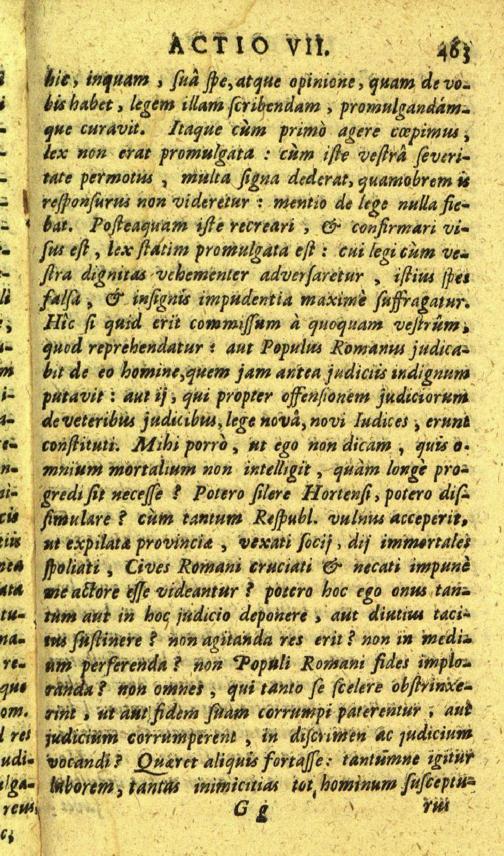 ACTIO VII. 463
hic, inquam, suâ spe, atque opinione, quam de vo-
bis habet, legem illam scribendam, promulgandám-
que curavit. Itaque cùm primò agere cœpimus,
lex non erat promulgata: cùm iste vestrâ severi-
tate permotus, multa signa dederat, quamobrem is
responsurus non videretur: mentio de lege nulla fie-
bat. Posteaquam iste recreari, & confirmari vi-
sus est, lex statim promulgata est: cui legi cùm ve-
stra dignitas vehementer adversaretur, istius spes
falsa, & insignis impudentia maximè suffragatur.
Hîc si quid erit commissum à quoquam vestrûm,
quod reprehendatur: aut Populus Romanus judica-
bit de eo homine, quem jam antea judiciis indignum
putavit: aut ij, qui propter offensionem judiciorum
de veteribus judicibus, lege novâ, novi Iudices, erunt
constituti. Mihi porrò, ut ego non dicam, quis o-
mnium mortalium non intelligit, quàm longè pro-
gredi sit necesse? Potero silere Hortensi, potero dis-
simulare? cùm tantum Respubl. vulnus acceperit,
ut expilata provinciæ, vexati socij, dij immortales
spoliati, Cives Romani cruciati & necati impunè
me actore esse videantur? potero hoc ego onus tan-
tum aut in hoc judicio deponere, aut diutius taci-
tus sustinere? non agitanda res erit? non in medi-
um perferenda? non Populi Romani fides implo-
randa? non omnes, qui tanto se scelere obstrinxe-
rint, ut aut fidem suam corrumpi paterentur, aut
judicium corrumperent, in discrimen ac judicium
vocandi? Quæret aliquis fortasse: tantumne igitur
laborem, tantas inimicitias tot hominum susceptu-
G g rus